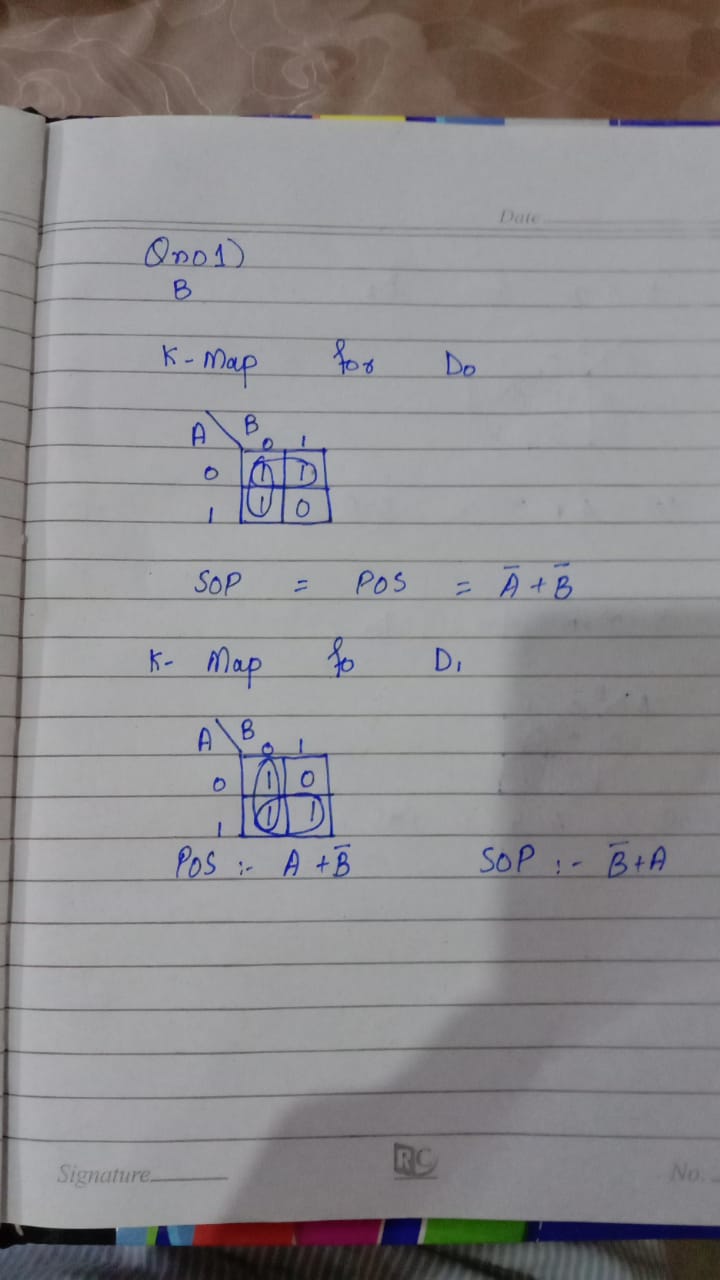 Date
Qno1)
B
K-Map for D₀
A B
0 1
0 1 1
1 1 0
SOP = POS = A̅ + B̅
K- Map fo D₁
A B
0 1
0 1 0
1 1 1
POS :- A + B̅ SOP :- B̅+A
Signature RC No.